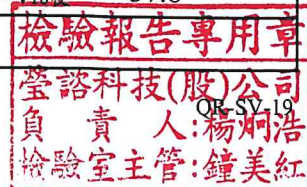 檢驗報告專用章
瑩諮科技(股)公司
QR-SV-19
負責人:楊炯浩
檢驗室主管:鐘美紅